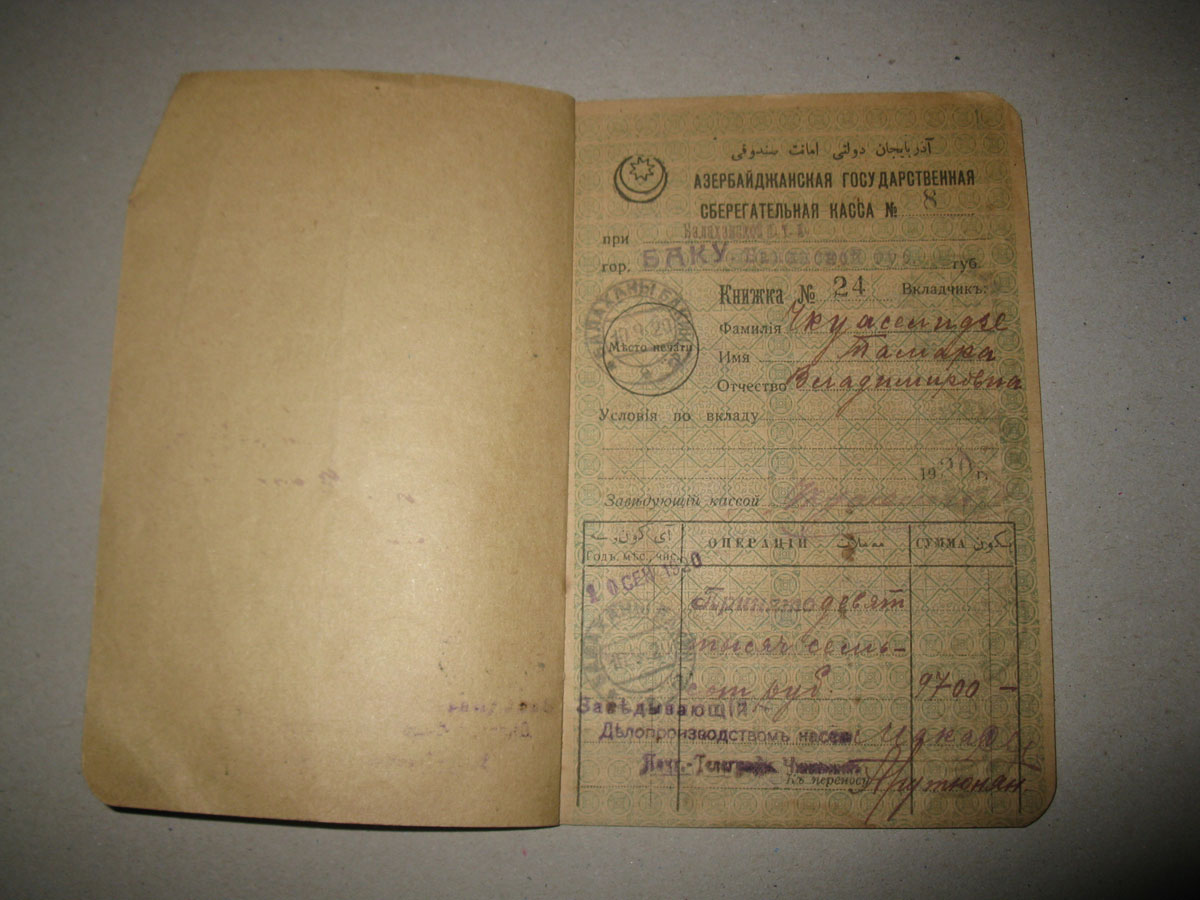 1
آذربایجان دولتی امانت سندوقی
АЗЕРБАЙДЖАНСКАЯ ГОСУДАРСТВЕННАЯ
СБЕРЕГАТЕЛЬНАЯ КАССА № 8
при
гор. БАКУ губ.
Книжка № 24 Вкладчикъ:
Фамилія
Имя Тамара
Отчество Владимировна
Мѣсто печати
БАЛАХАНЫ
Условія по вкладу
1920 г.
Завѣдующій кассой
Годъ, мѣс., чис. ОПЕРАЦІИ СУММА
20 СЕН 1920
Принято девят
тысяч семь-
сот руб. 9700 —
Завѣдывающій
Дѣлопроизводствомъ кассы
Почт.-Телеграфн.
Къ переносу Арутюнян